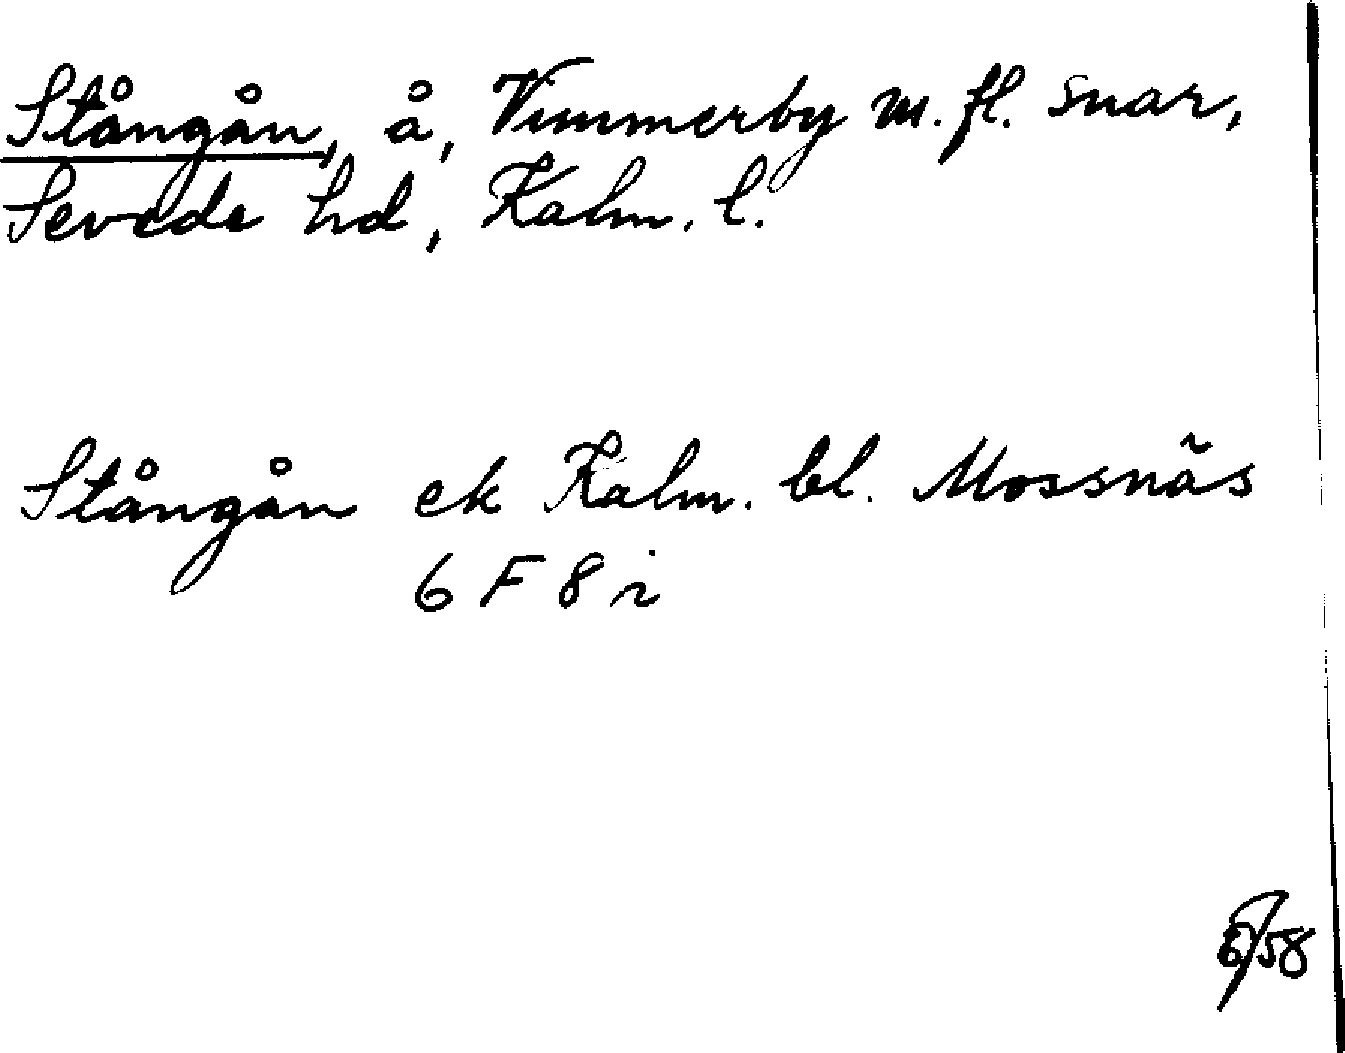 Stångån, å, Vimmerby m.fl. snar,
Sevede hd, Kalm. l.
Stångån ek Kalm. bl. Mossnäs
6 F 8 i
/58